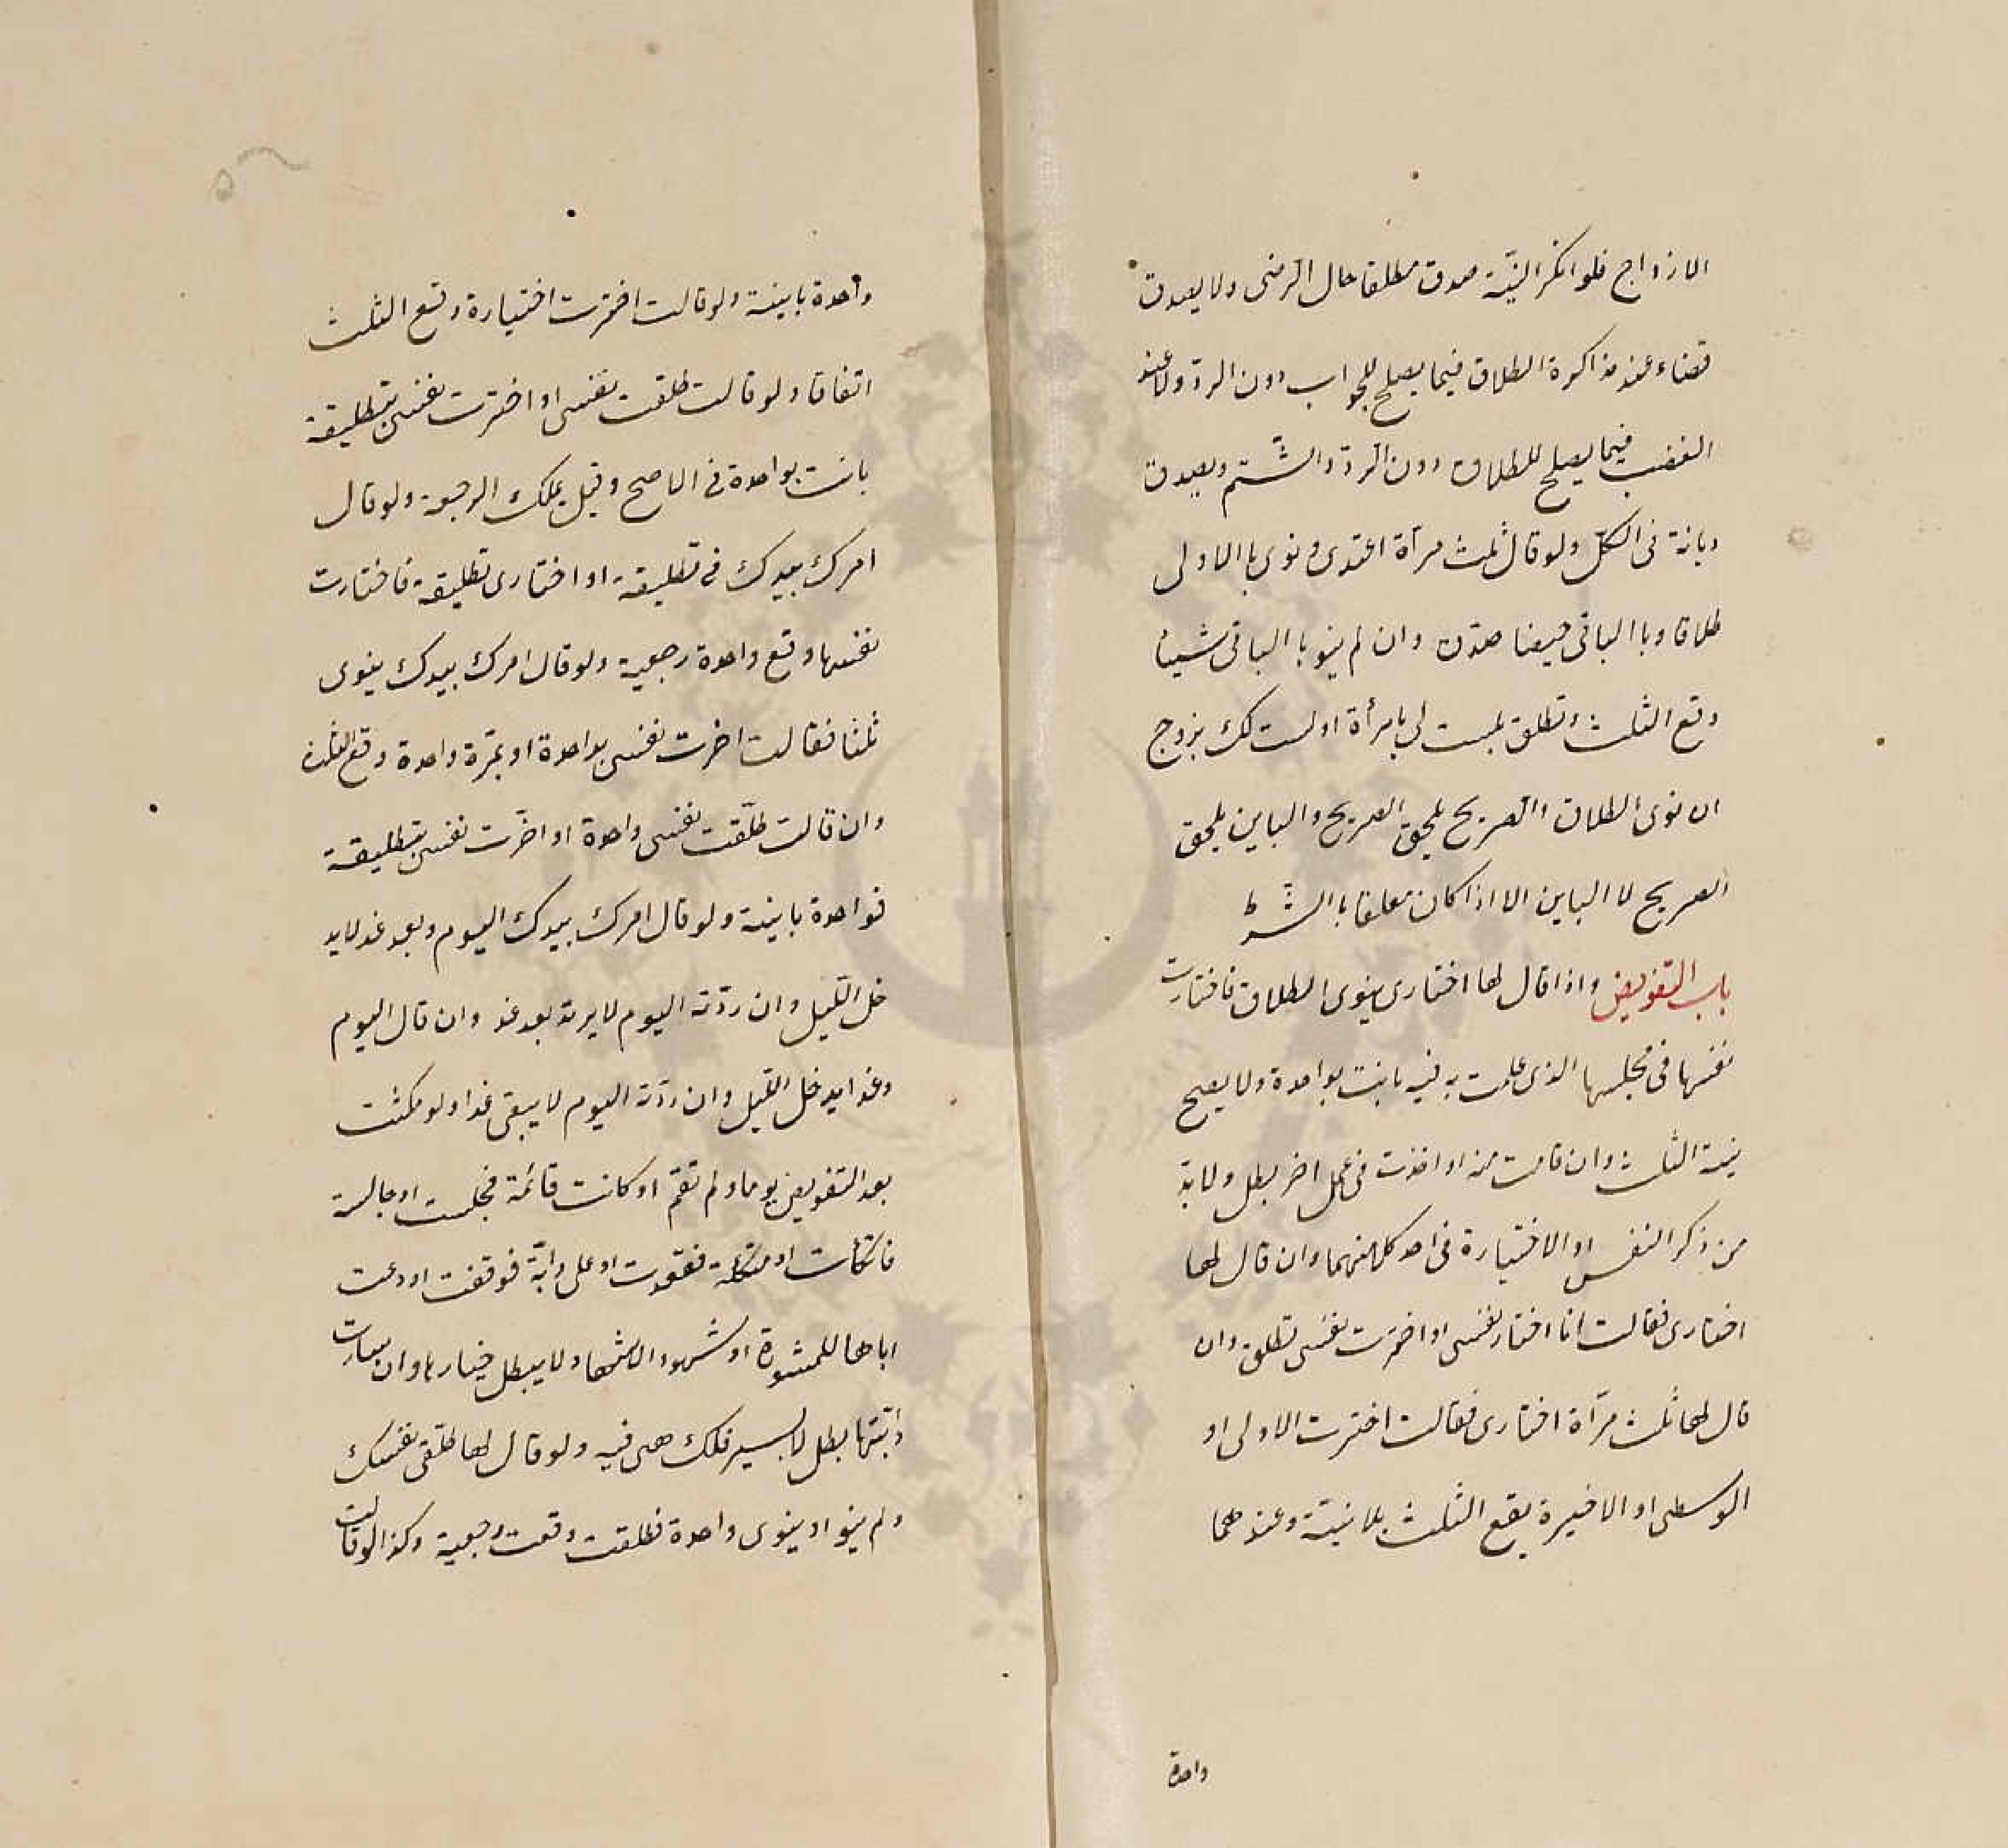 الازواج فلو انكر النيّة صدق مطلقا حال الرضى ولا يصدق
قضاء عند مذاكرة الطلاق فيما يصلح للجواب دون الردّ ولا عند
الغضب فيما يصلح للطلاق دون الردّ والشتم ويصدق
ديانة فى الكلّ ولو قال ثلث مرآة اعتدى ونوى باالاولى
طلاقا وباالباقى حيضا صدّق وان لم ينو باالباقى شيئا
وقع الثلث وتطلق بلست لى بامرأة او لست لك بزوج
ان نوى الطلاق والصريح يلحق الصريح والباين يلحق
الصريح لا الباين الا اذا كان معلقا باالشرط
باب التفويض واذا قال لها اختارى ينوى الطلاق فاختارت
نفسها فى مجلسها الذى علمت به فيه بانت بواحدة ولا يصح
نية الثلث وان قامت منه او اخذت فى عمل اخر بطل ولا بدّ
من ذكر النفس او الاختيارة فى احد كلامهما وان قال لها
اختارى فقالت انا اختار نفسى او اخترت نفسى تطلق وان
قال لها ثلث مرآة اختارى فقالت اخترت الاولى او
الوسطى او الاخيرة يقع الثلث بلا نيّة وعندهما
واحدة
واحدة باينة ولو قالت اخترت اختيارة وقع الثلث
اتفاقا ولو قالت طلقت نفسى او اخترت نفسى بتطليقة
بانت بواحدة فى الاصح وقيل يملك الرجعة ولو قال
امرك بيدك فى تطليقة او اختارى تطليقة فاختارت
نفسها وقع واحدة رجعية ولو قال امرك بيدك ينوى
ثلثا فقالت اخرت نفسى بواحدة او بمرّة واحدة وقع الثلث
وان قالت طلّقت نفسى واحدة او اخرّت نفسى بتطليقة
فواحدة باينة ولو قال امرك بيدك اليوم وبعد غد لايد
خل اللّيل وان ردّته اليوم لا يرتد بعد غد وان قال اليوم
وغدا يدخل اللّيل وان ردّته اليوم لا يبقى غدا ولو مكثت
بعد التفويض يوما ولم تقم او كانت قائمة فجلست او جالسة
فاتكأت او متكئة فقعدت او على دابّة فوقفت او دعت
اباها للمشورة او شهود الاشهاد لا يبطل خيارها وان سارت
دابّتها بطل لا بسير فلك هى فيه ولو قال لها طلّقى نفسك
ولم ينو او ينوى واحدة فطلقت وقعت رجعية وكذا لو قالت